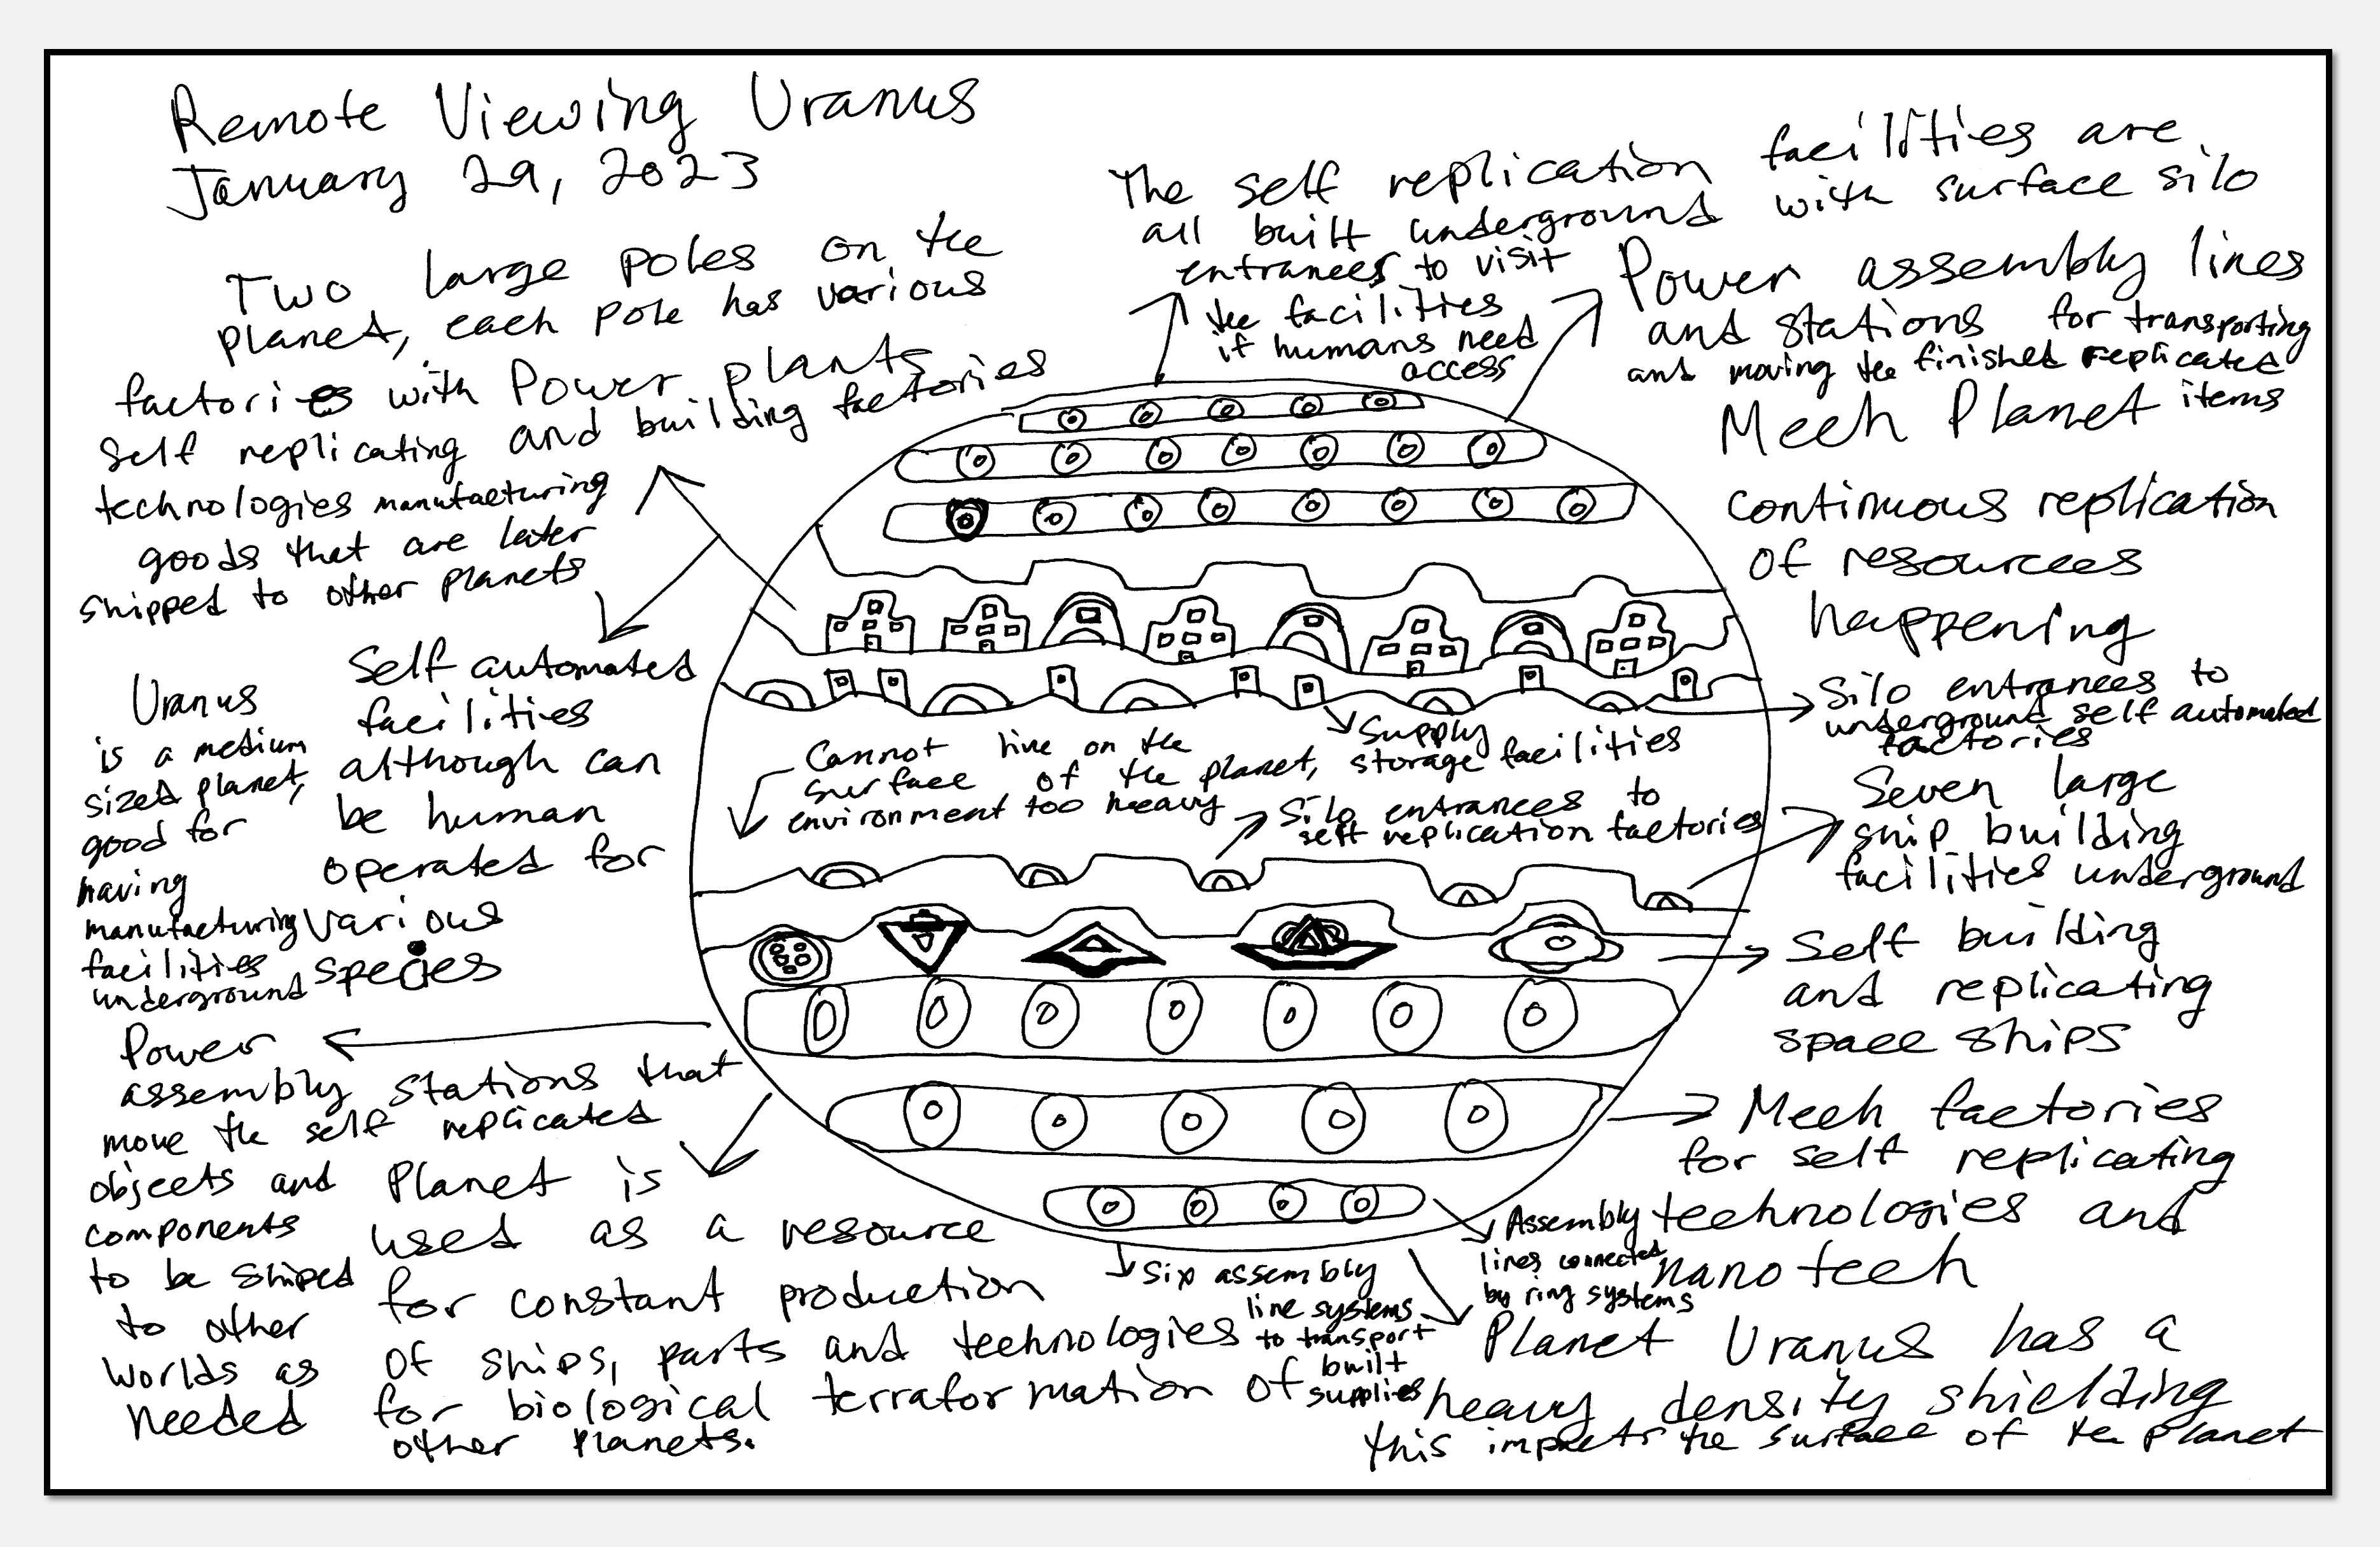 Remote Viewing Uranus
January 29, 2023
Two large poles on the
planet, each pole has various
factories with Power plants
self replicating and building factories
technologies manufacturing
goods that are later
shipped to other planets
Self automated
facilities
although can
be human
operated for
various
species
Uranus
is a medium
sized planet,
good for
having
manufacturing
facilities
underground
Power
assembly stations that
move the self replicated
objects and
components
to be shiped
to other
worlds as
needed
Planet is
used as a resource
for constant production
of ships, parts and technologies
for biological terraformation of
other planets.
The self replication facilities are
all built underground with surface silo
entrances to visit
the facilities
if humans need
access
Power assembly lines
and stations for transporting
and moving the finished replicated
items
Mech Planet
continuous replication
of resources
happening
Silo entrances to
underground self automated
factories
Supply
storage facilities
Cannot live on the
surface of the planet,
environment too heavy
Silo entrances to
self replication factories
Seven large
ship building
facilities underground
Self building
and replicating
space ships
Mech factories
for self replicating
technologies and
nanotech
Assembly
lines connected
by ring systems
Six assembly
line systems
to transport
built
supplies
Planet Uranus has a
heavy density shielding
this impacts the surface of the planet